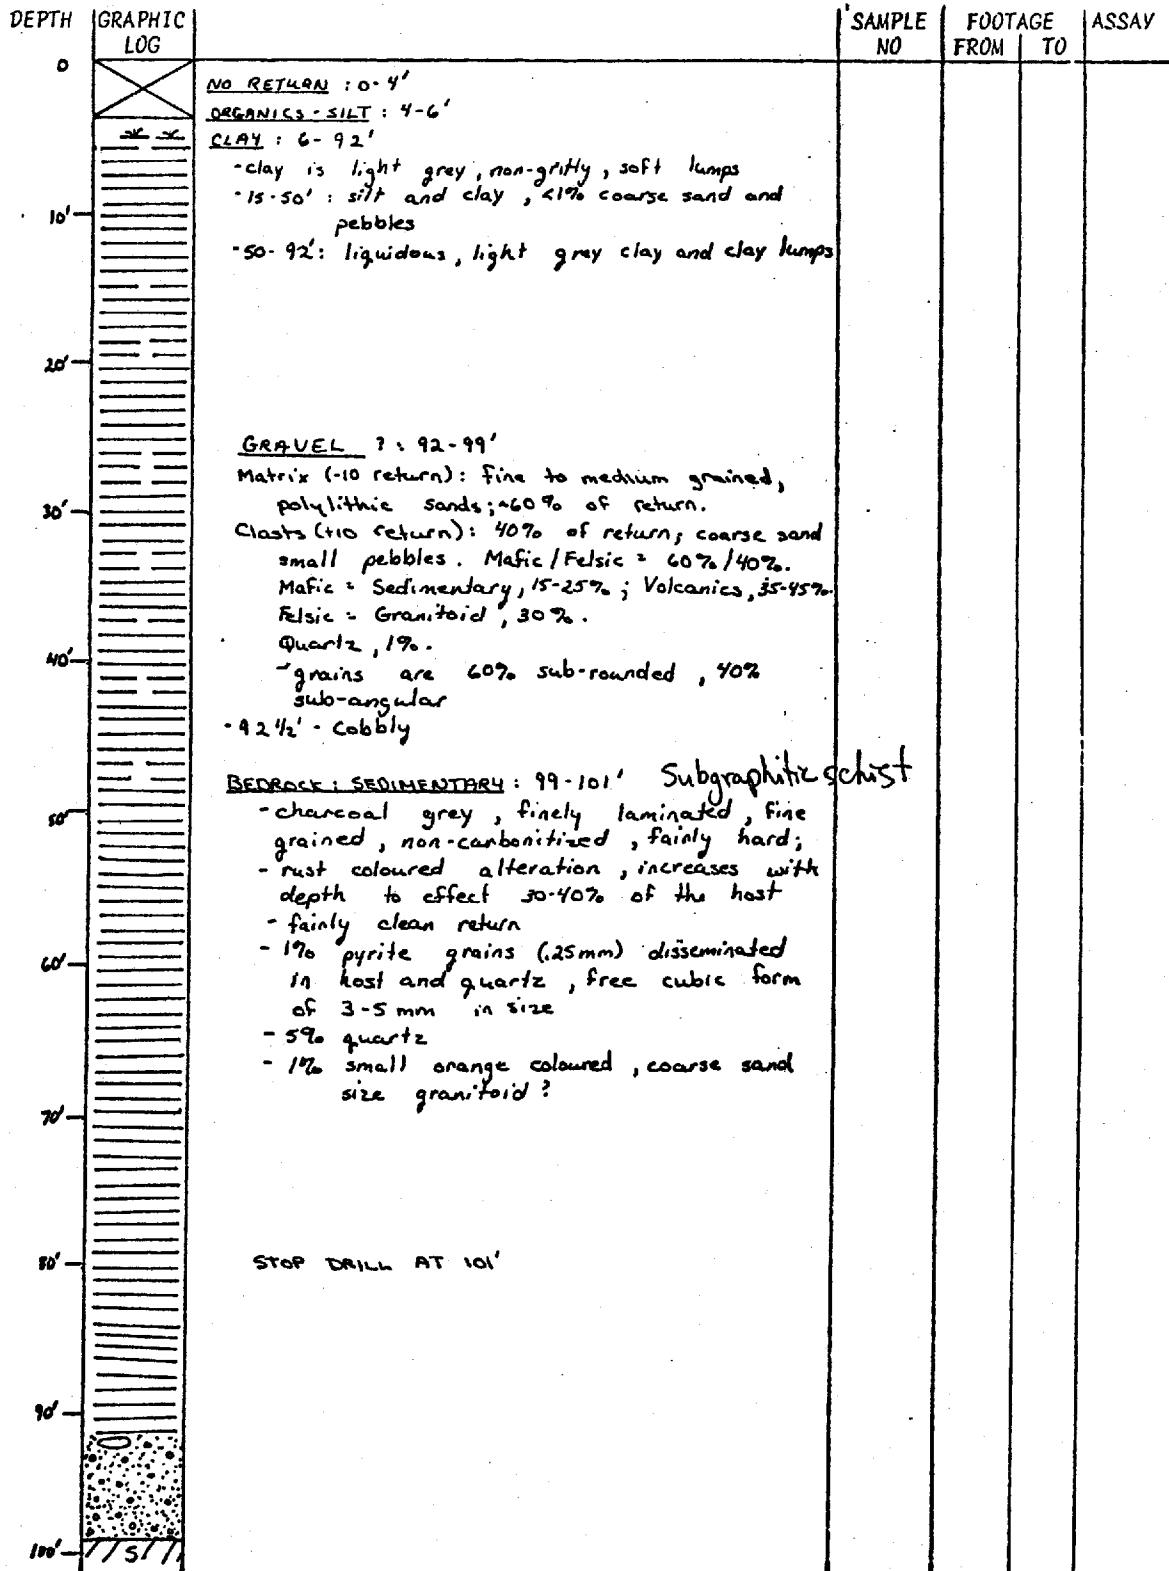 DEPTH GRAPHIC LOG SAMPLE NO FOOTAGE FROM TO ASSAY
0
NO RETURN : 0-4'
ORGANICS-SILT : 4-6'
CLAY : 6-92'
-clay is light grey, non-gritty, soft lumps
-15-50' : silt and clay, <1% coarse sand and
10'
pebbles
-50-92': liquidous, light grey clay and clay lumps
20'
GRAVEL ? : 92-99'
Matrix (-10 return): fine to medium grained,
polylithic sands; ~60% of return.
30'
Clasts (+10 return): 40% of return; coarse sand
small pebbles. Mafic/Felsic = 60%/40%.
Mafic = Sedimentary, 15-25%; Volcanics, 35-45%.
Felsic = Granitoid, 30%.
Quartz, 1%.
40'
-grains are 60% sub-rounded, 40%
sub-angular
-92 1/2' - Cobbly
BEDROCK : SEDIMENTARY : 99-101' Subgraphitic schist
50'
-charcoal grey, finely laminated, fine
grained, non-carbonitized, fairly hard;
- rust coloured alteration, increases with
depth to effect 30-40% of the host
- fairly clean return
- 1% pyrite grains (.25mm) disseminated
60'
in host and quartz, free cubic form
of 3-5 mm in size
- 5% quartz
- 1% small orange coloured, coarse sand
size granitoid?
70'
80'
STOP DRILL AT 101'
90'
100'
S